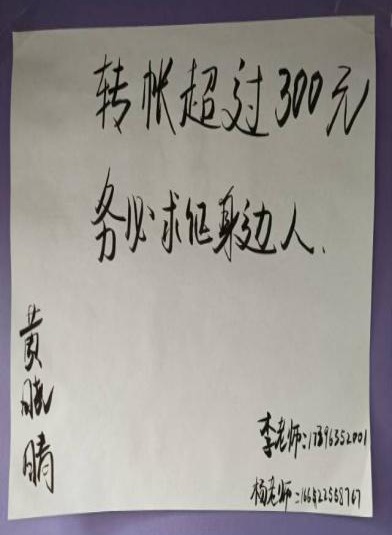 转帐超过300元
务必求证身边人、
黄晓晴
李老师:17396352001
杨老师:166422568767